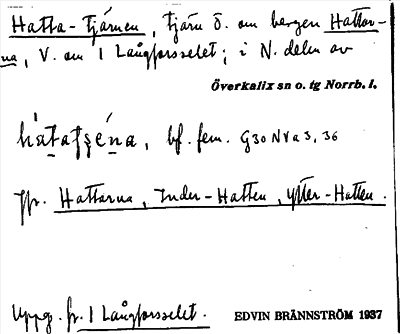 Hatta-tjärnen, tjärn ö. om bergen Hattar-
na, V. om 1 Långforsselet; i N. delen av
Överkalix sn o. tg Norrb. l.
bf. fem. G30 NV a 3, 36
Jfr. Hattarna, Inder-Hatten, Ytter-Hatten.
Uppg. fr. 1 Långforsselet. EDVIN BRÄNNSTRÖM 1937